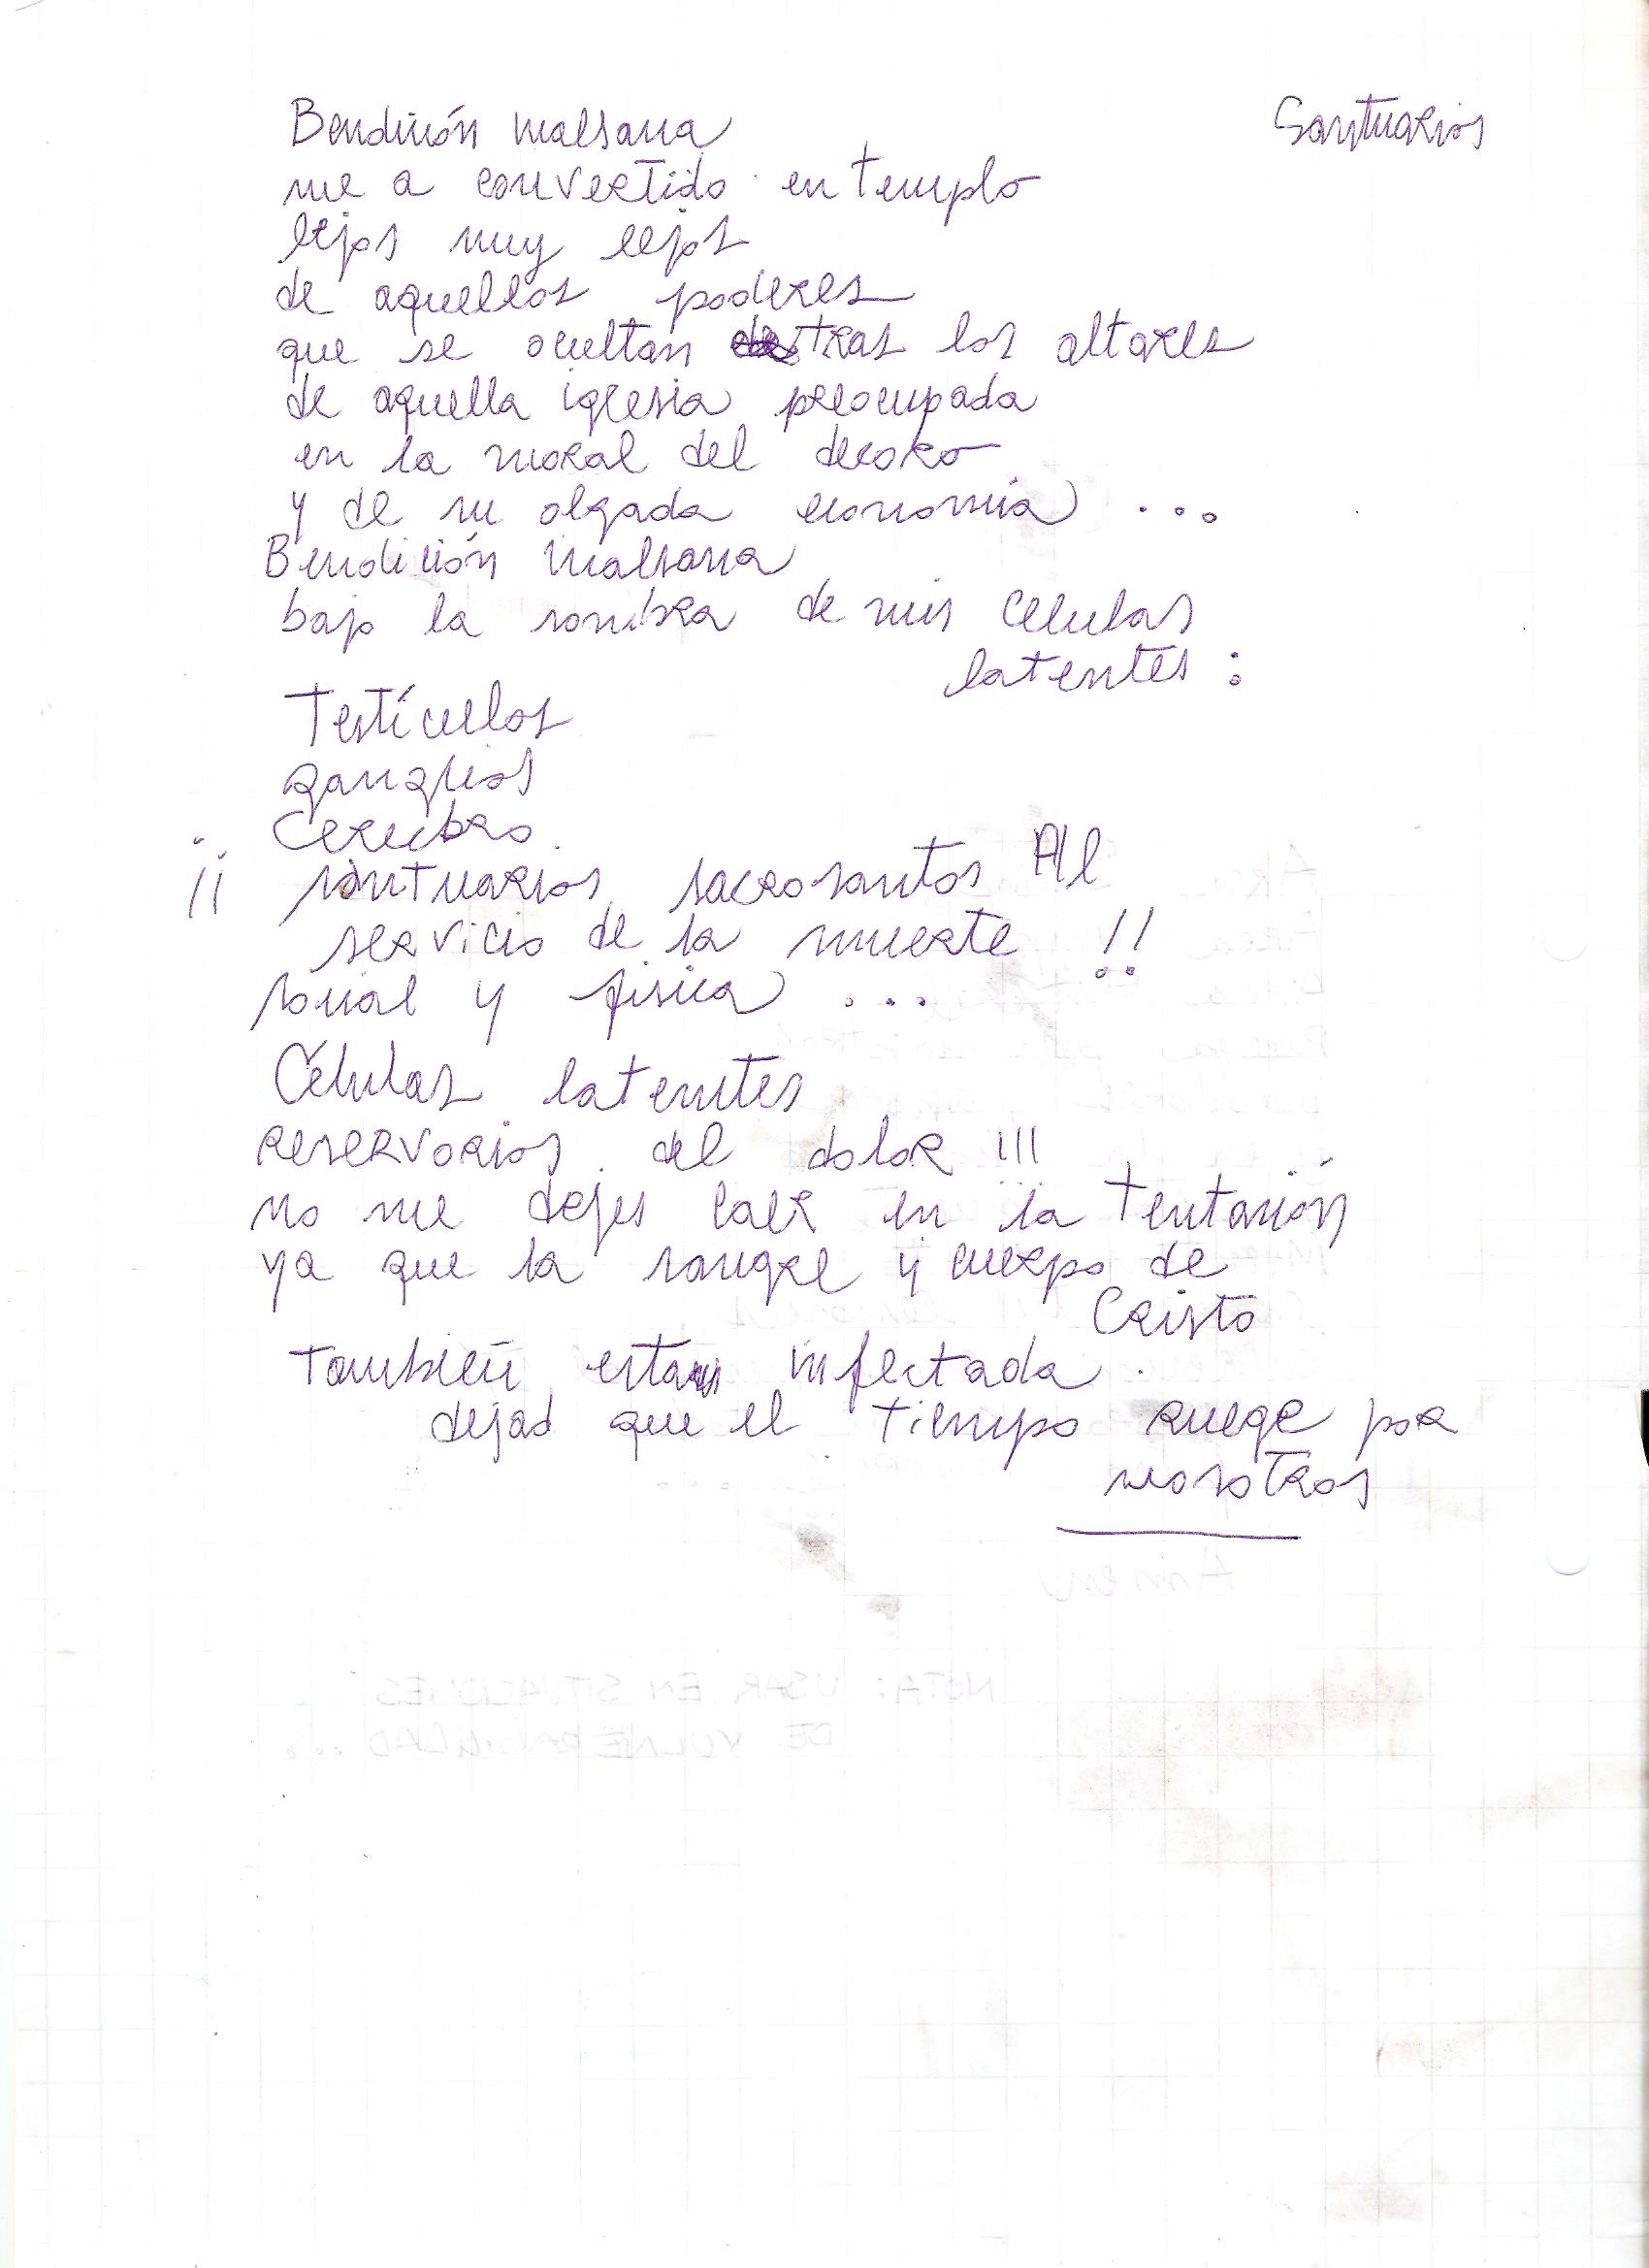 Santuarios
Bendición malsana
me a convertido en templo
lejos muy lejos
de aquellos poderes
que se ocultan tras los altares
de aquella iglesia preocupada
en la moral del decoro
y de su olgada economía ...
Bendición malsana
bajo la sombra de mis celulas
latentes :
Testículos
ganglios
Cerebro
¡¡ santuarios sacrosantos Al
servicio de la muerte !!
social y fisica ...
Células latentes
reservorios del dolor !!!
no me dejes caer en la tentación
ya que la sangre y cuerpo de
Cristo
también estan infectada
dejad que el tiempo ruege por
nosotros
Amen
NOTA: USAR EN SITUACIONES
DE VULNERABILIDAD ...